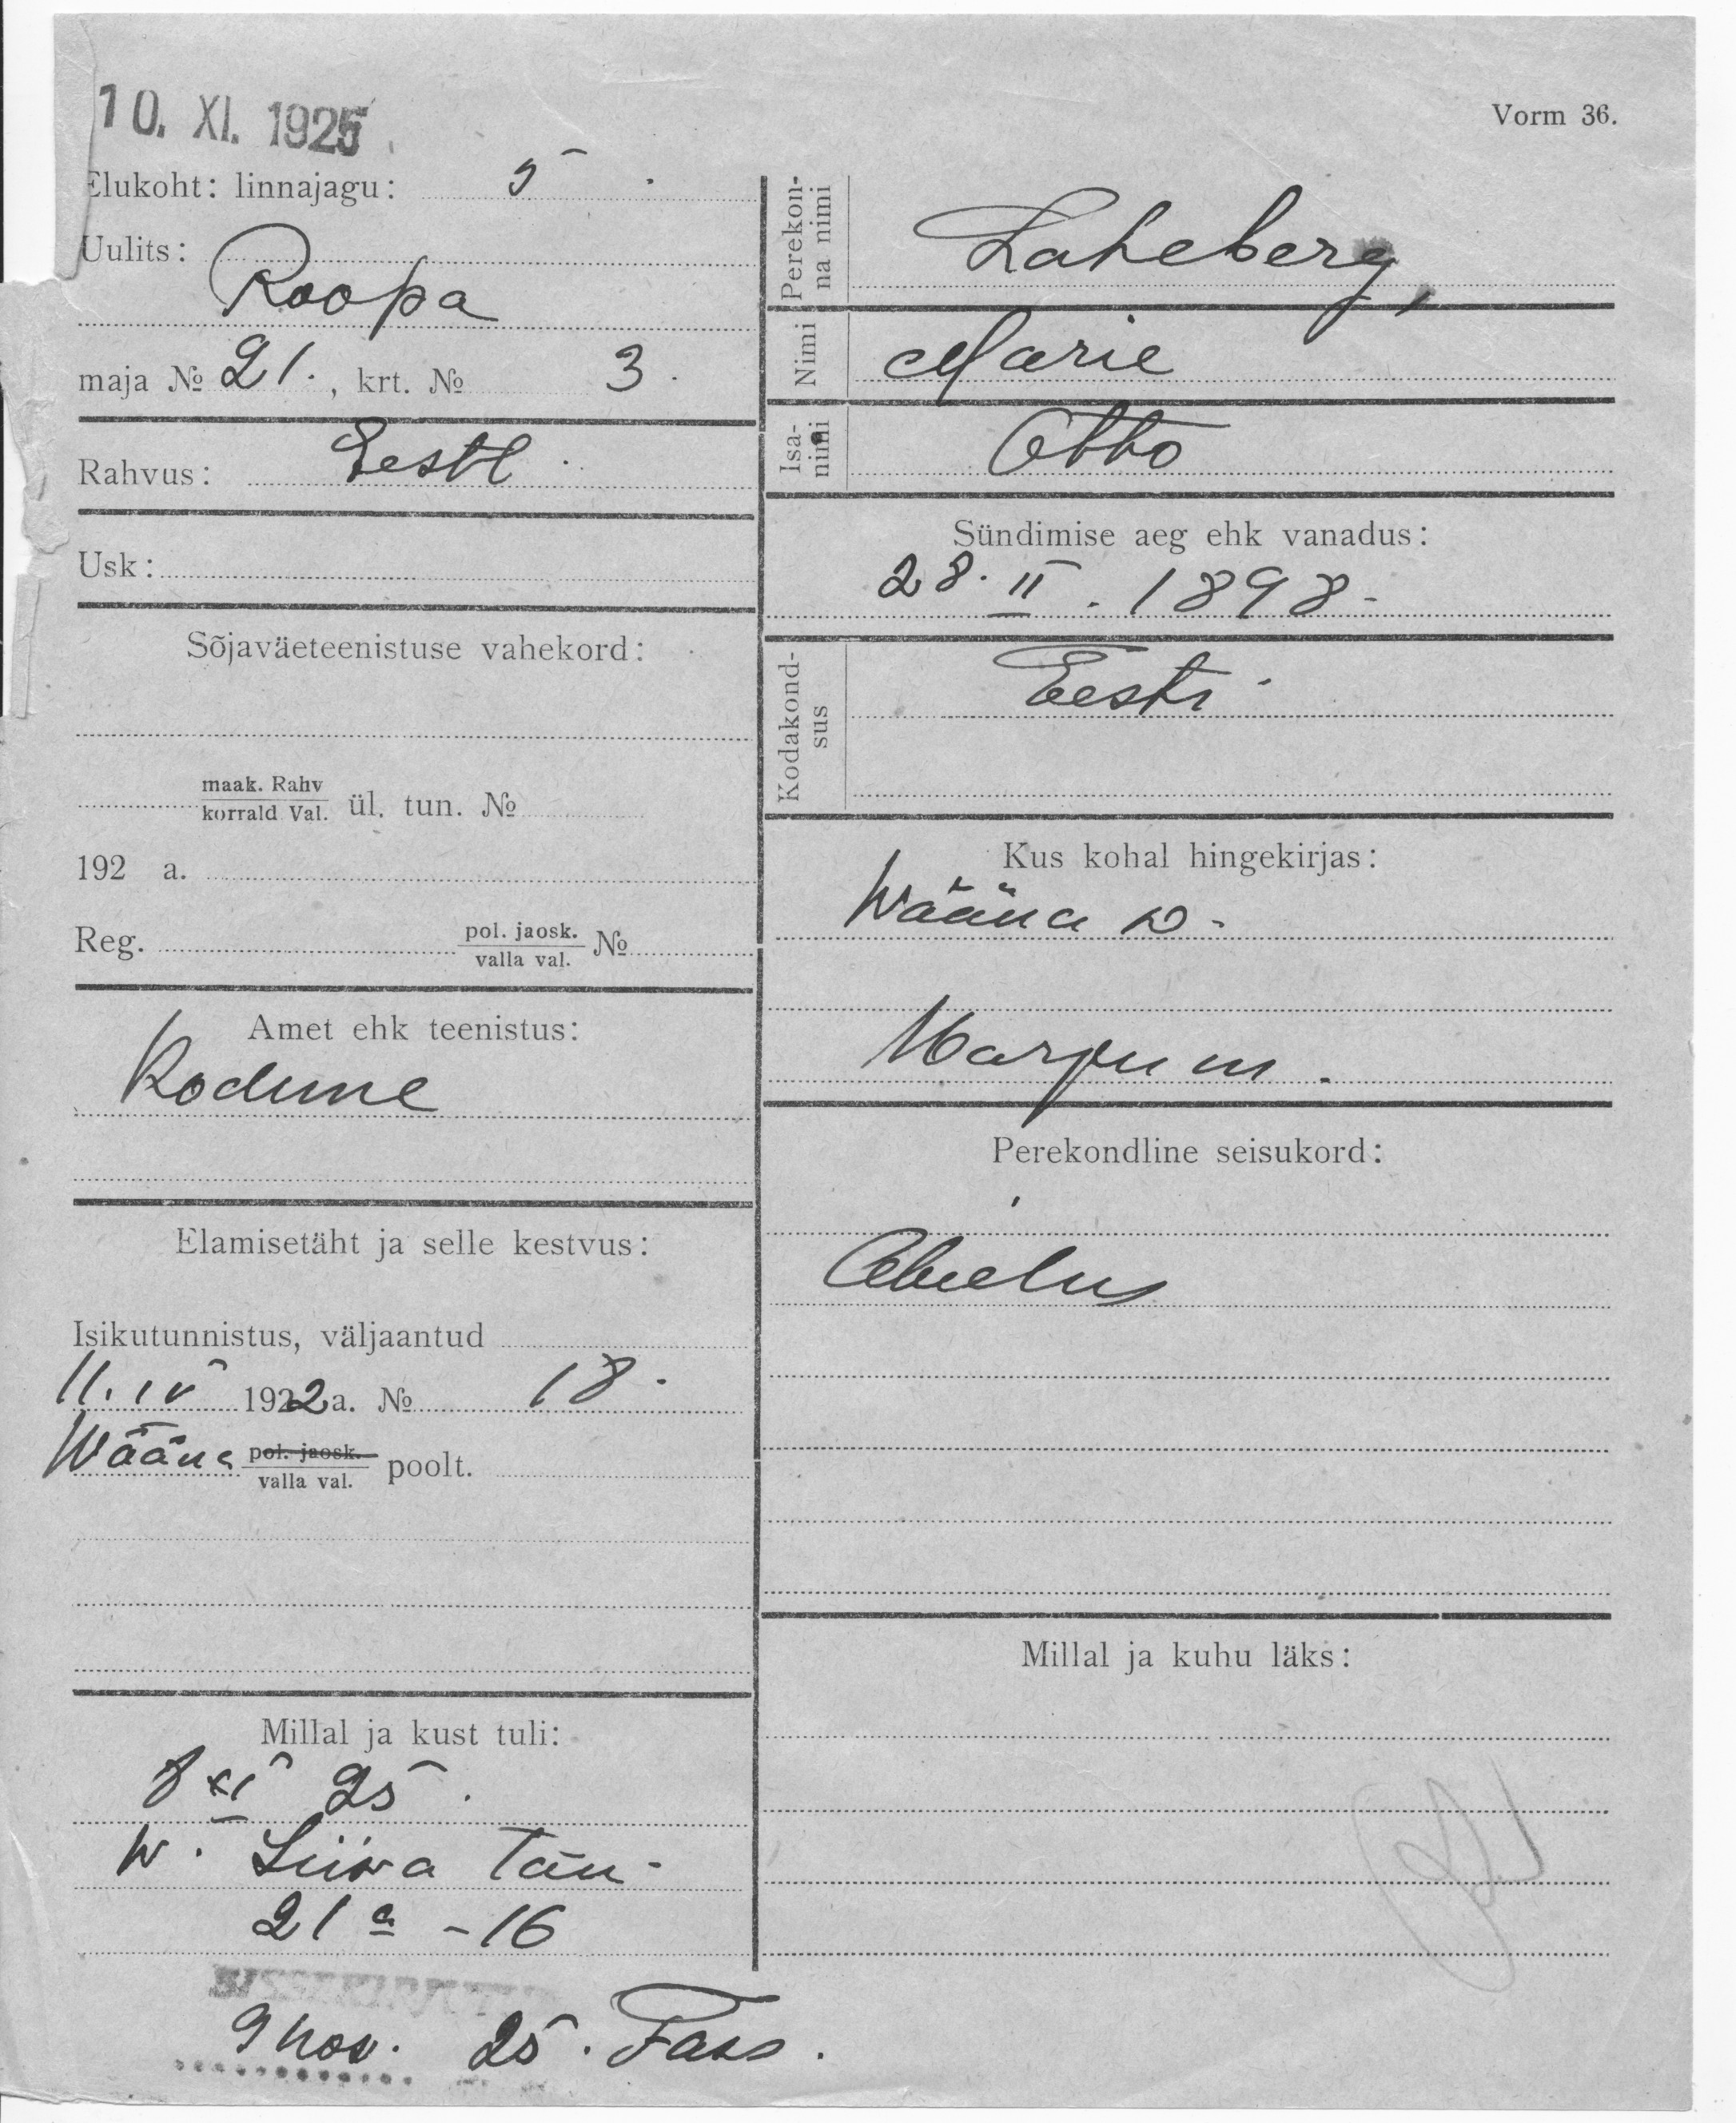 10. XI. 1925.
Vorm 36.
Elukoht: linnajagu: 5.
Uulits:
Roopa
maja № 21., krt. № 3.
Rahvus: Eestl.
Usk:
Sõjaväeteenistuse vahekord:
maak. Rahv
korrald Val. ül. tun. №
192 a.
Reg. pol. jaosk.
valla val. №
Amet ehk teenistus:
Kodune
Elamisetäht ja selle kestvus:
Isikutunnistus, väljaantud
11. IV 1922 a. № 18.
Wääna pol. jaosk.
valla val. poolt.
Millal ja kust tuli:
8 XI 25.
W. Liiva tän-
21 a - 16
SISSEKIRJUTATUD
9 nov. 25.
Perekonna nimi
Laheberg,
Nimi Marie
Isanimi Otto
Sündimise aeg ehk vanadus:
28. II. 1898-
Kodakondsus Eesti
Kus kohal hingekirjas:
Wääna v-
Harju m.
Perekondline seisukord:
Abielus
Millal ja kuhu läks: